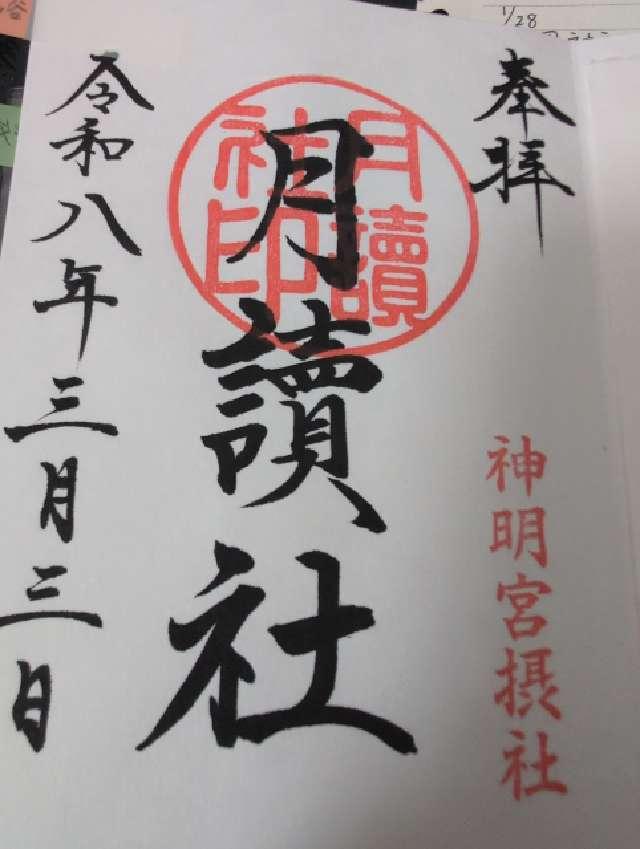 奉拝
神明宮摂社
月讀社
月讀社印
令和八年三月三日
1/28